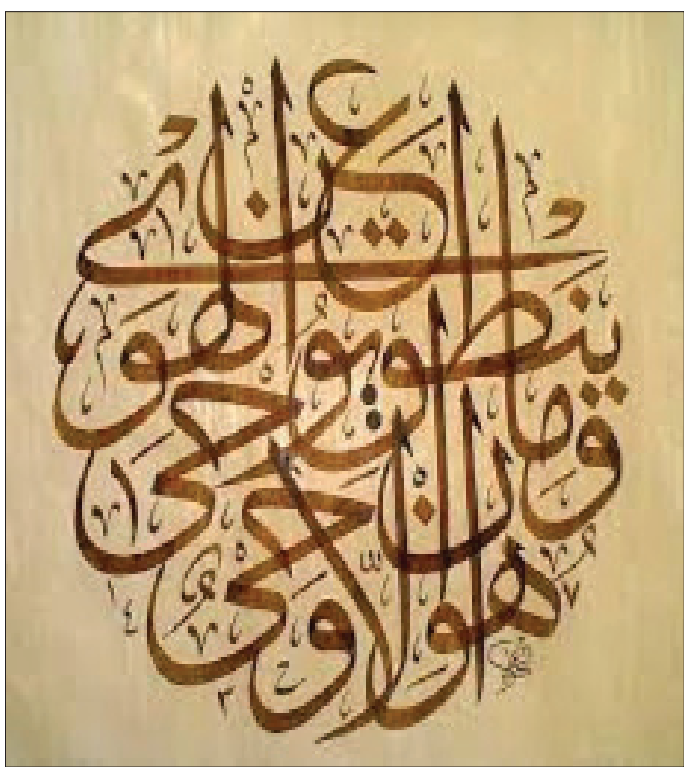 وما ينطق عن الهوى
إن هو إلا وحي يوحى